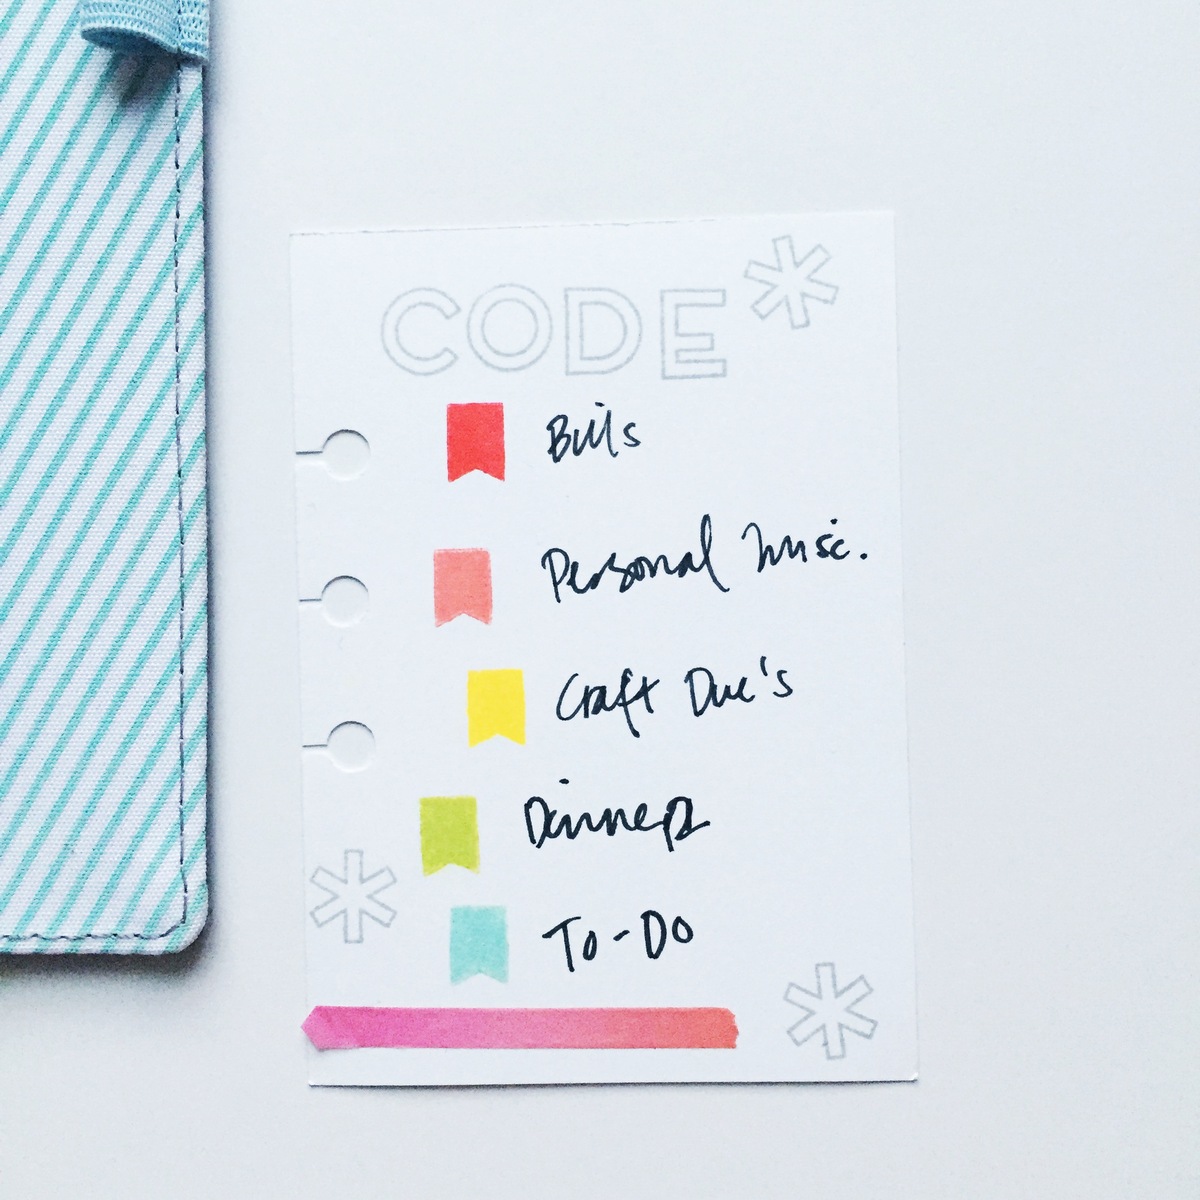 CODE*
Bills
Personal Misc.
Craft Due's
Dinner
To-Do